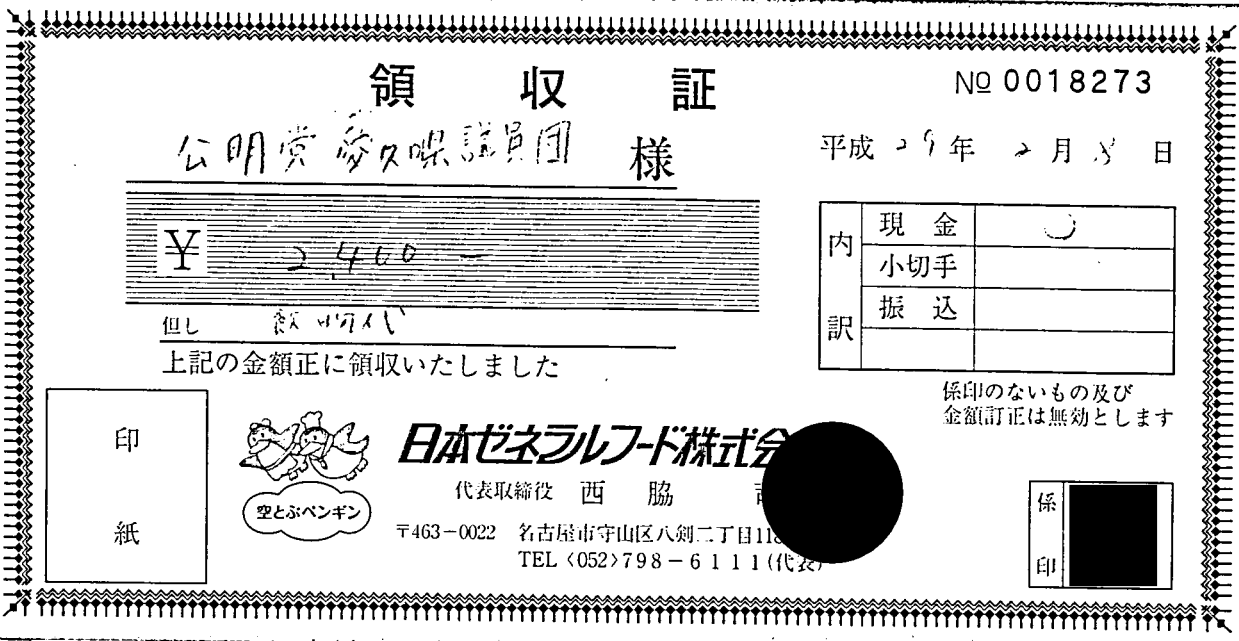 領収証
№ 0018273
公明党愛知県議員団 様
平成 29年 2月 8日
¥ 2,400 -
内訳
現金
小切手
振込
但し
上記の金額正に領収いたしました
係印のないもの及び
金額訂正は無効とします
印紙
空とぶペンギン
日本ゼネラルフード株式会
代表取締役 西脇
〒463-0022 名古屋市守山区八剣二丁目11
TEL〈052〉798-6111(代表)
係印